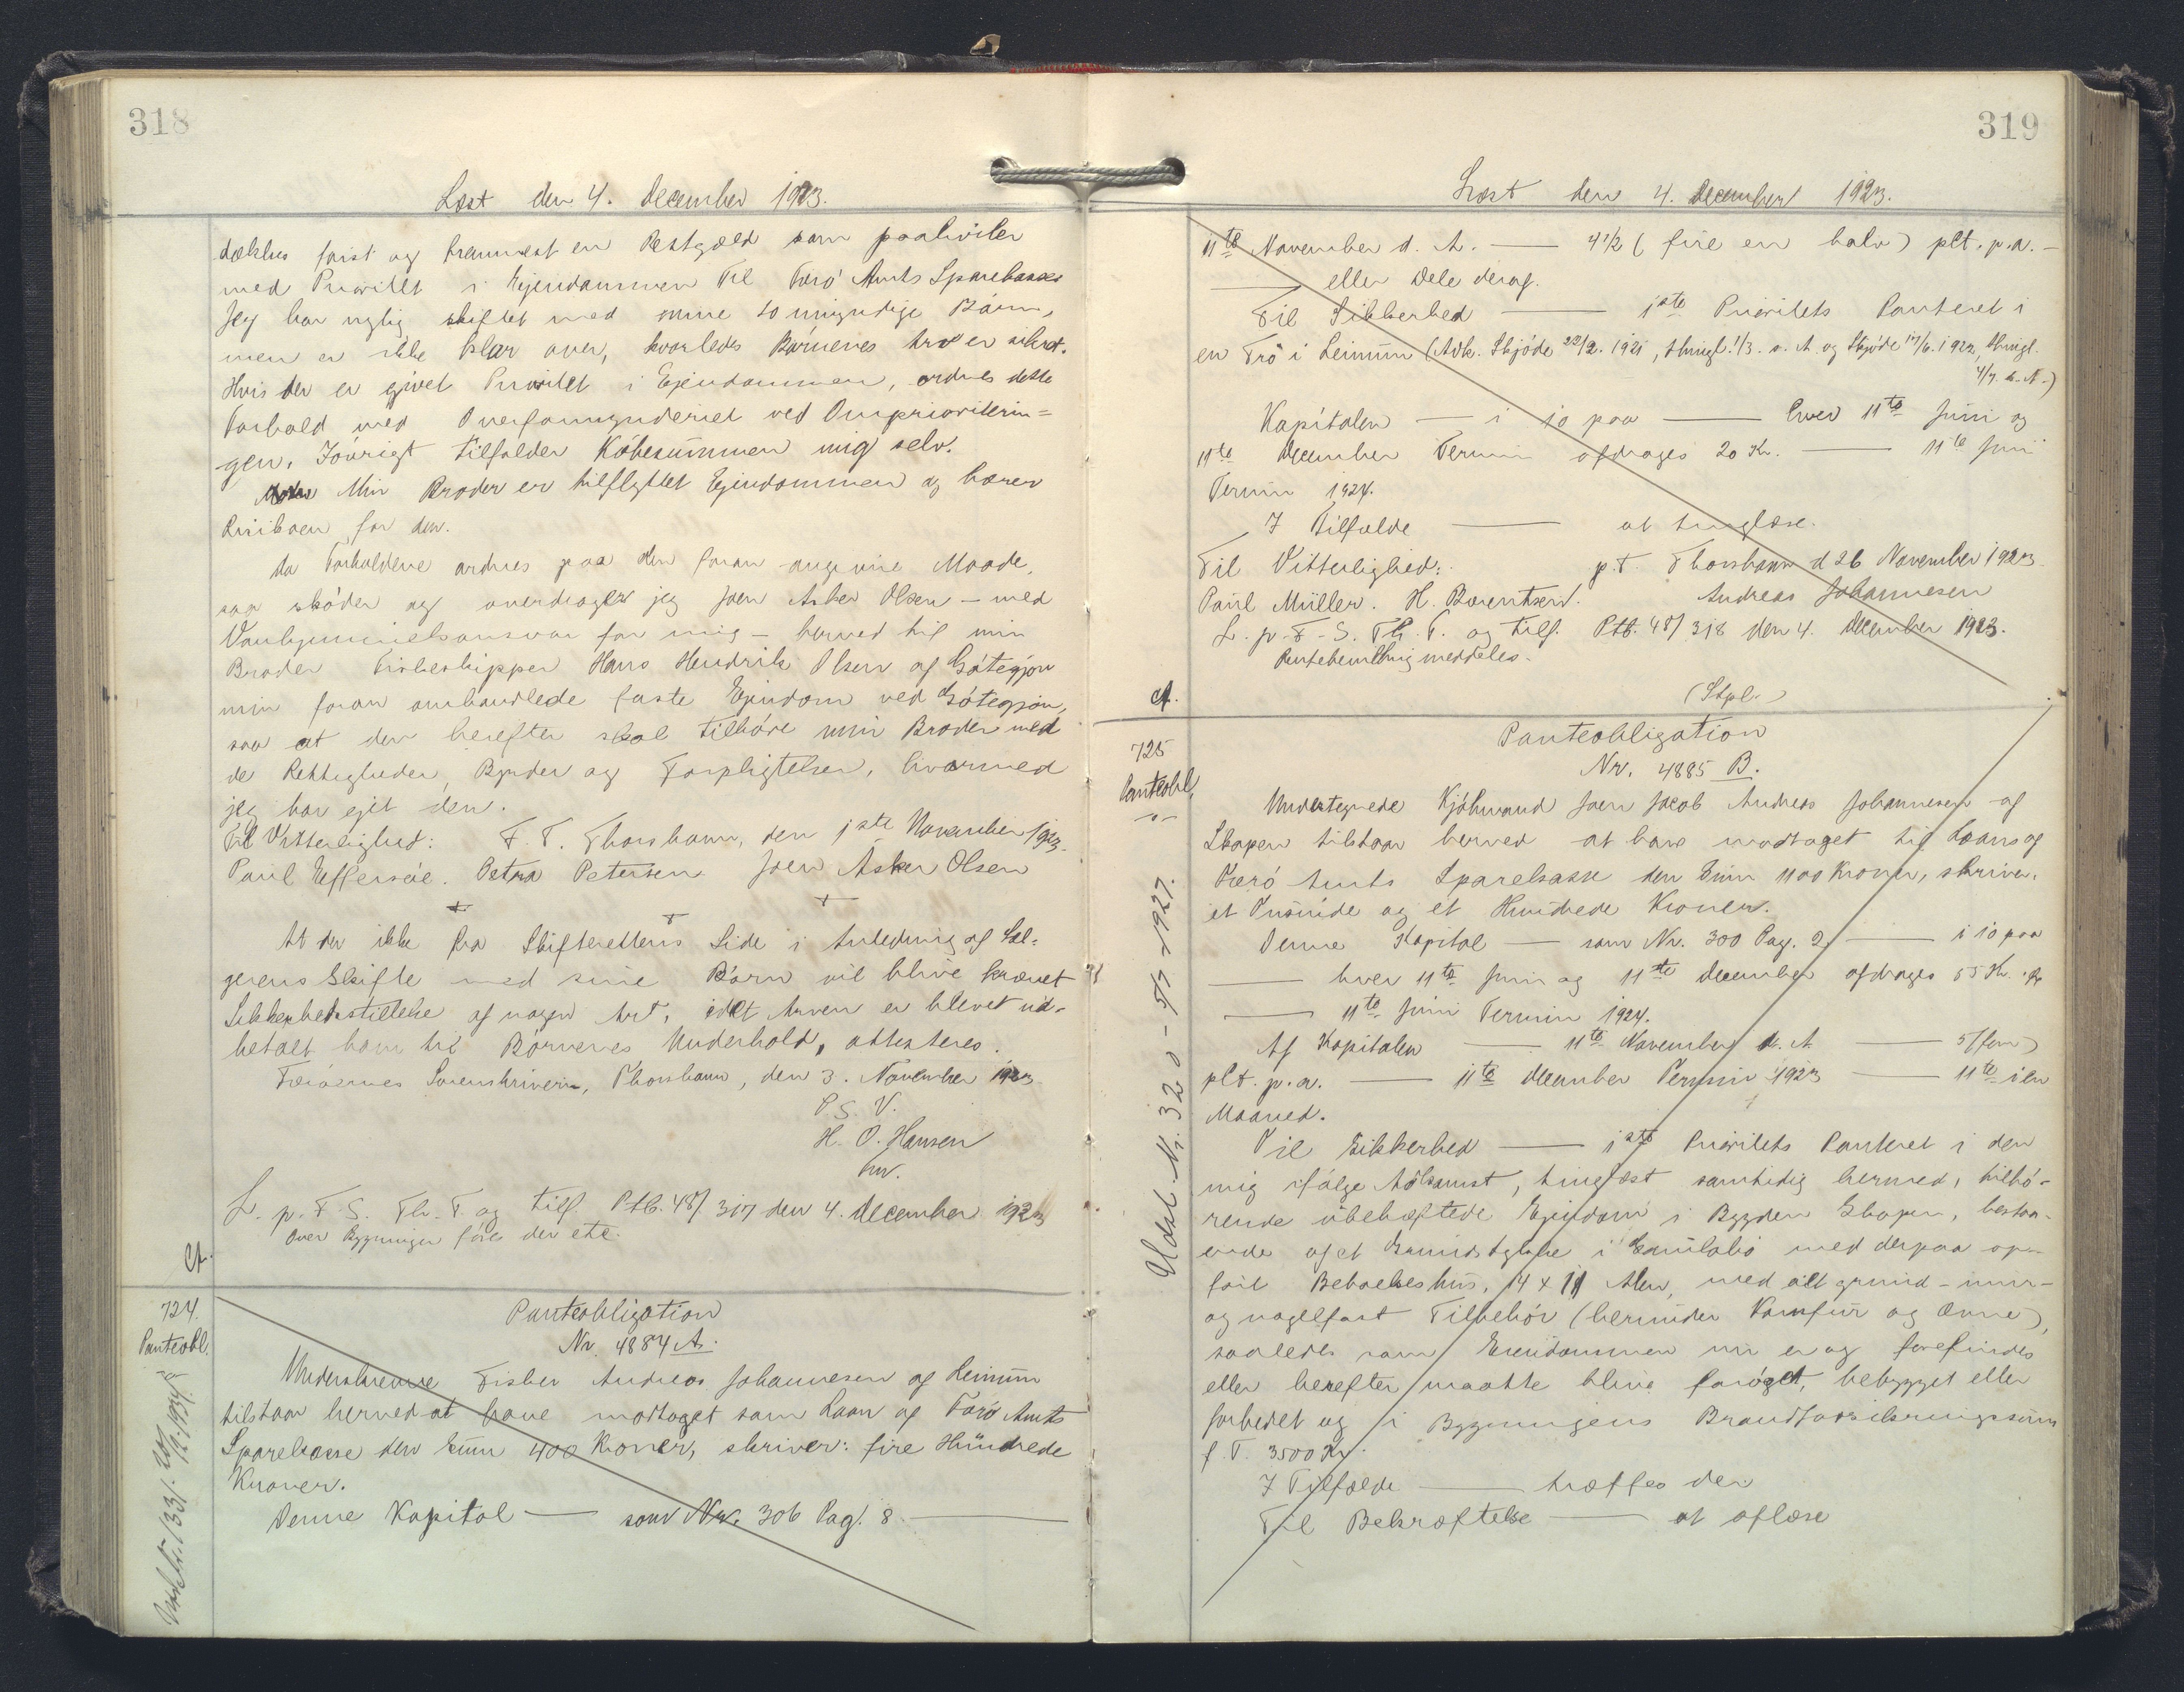 318
Læst den 4. December 1923.
dækkes først og fremmest en Restgæld som paahviler
med Prioritet i Ejendommen til Færø Amts Sparekasse
Jeg har nylig skiftet med mine to umyndige Børn,
men er ikke klar over, hvorledes Børnenes Arv er sikret.
Hvis der er givet Prioritet i Ejendommen, ordnes dette
Forhold med Overformynderiet ved Omprioriterin=
gen. Iøvrigt tilfalder Købesummen mig selv.
Min Broder er tilflyttet Ejendommen og bærer
Risikoen for den.
Da Forholdene ordnes paa den foran angivne Maade,
saa skøder og overdrager jeg Joen Asker Olsen — med
Vanhjemmelsansvar for mig — herved til min
Broder Fiskeskipper Hans Hendrik Olsen af Gøtegjov
min foran omhandlede faste Ejendom ved Gøtegjov,
saa at den herefter skal tilhøre min Broder med
de Rettigheder, Byrder og Forpligtelser, hvormed
jeg har ejet den.
Til Vitterlighed: F. T. Thorshavn, den 1ste November 1923.
Paul Effersøe. Petra Petersen Joen Asker Olsen
At der ikke fra Skifterettens Side i Anledning af Sæl=
gerens Skifte med sine Børn vil blive krævet
Sikkerhedsstillelse af nogen Art, idet Arven er blevet ud-
betalt ham til Børnenes Underhold, attesteres.
Færøernes Sorenskriveri, Thorshavn, den 3. November 1923
P. S. V.
H. O. Hansen
fm.
L. p. F. S. Th. T. og tilf. Ptb. 48/317 den 4. December 1923
Over Bygningen føres der etc.
Ct.
724.
Panteobl.
Panteobligation
Nr. 4884 A.
Underskrevne Fisker Andreas Johannesen af Leinum
tilstaar herved at have modtaget som Laan af Færø Amts
Sparekasse den Sum 400 Kroner, skriver: fire Hundrede
Kroner.
Denne Kapital — som Nr. 306 Pag. 8 —
319
Læst den 4. December 1923.
11te November d. A. — 4 1/2 (fire en halv) pCt. p. a. —
— eller Dele deraf.
Til Sikkerhed — 1ste Prioritets Panteret i
en Trö i Leinum (Adk. Skjøde 22/2. 1921, thingl. 1/3. s. A. og Skjøde 17/6. 1922, thingl.
4/7. s. A.)
Kapitalen — i 10 paa — hver 11te Juni og
11te December Termin afdrages 20 Kr. — 11te Juni
Termin 1924.
I Tilfælde — at tinglæse.
Til Vitterlighed: p. t. Thorshavn d 26 November 1923
Paul Müller. H. Bærentsen. Andreas Johannesen
L. p. F. S. Th. T. og tilf. Ptb. 48/318 den 4. December 1923.
meddeles.
Ct.
(Stpl.)
725
Panteobl.
Panteobligation
Nr. 4885 B.
Undertegnede Kjøbmand Joen Jacob Andreas Johannesen af
Skopen tilstaar herved at have modtaget til Laans af
Færø Amts Sparekasse den Sum 1100 Kroner, skriver
et Tusinde og et Hundrede Kroner.
Denne Kapital — som Nr. 300 Pag. 2 — i 10 paa
— hver 11te Juni og 11te December afdrages 55 Kr.
— 11te Juni Termin 1924.
Af Kapitalen — 11te November d. A. — 5 (fem)
pCt. p. a. — 11te December Termin 1923 — 11te i en
Maaned.
Til Sikkerhed — 1ste Prioritets Panteret i den
mig ifølge Adkomst, tinglæst samtidig hermed, tilhø-
rende ubehæftede Ejendom i Bygden Skopen, bestaa-
ende af et Grundstykke i med derpaa op-
ført Beboelseshus, 14 x 11 Alen, med alt grund - mur -
og nagelfast Tilbehør (herunder Komfur og Ovne),
saaledes som Ejendommen nu er og forefindes
eller herefter maatte blive forøget, bebygget eller
forbedret og i Bygningens Brandforsikringssum
f. T. 3500 Kr.
I Tilfælde — træffes der
Til Bekræftelse — at aflæse
Udsl. Nr. 320 - 5/5 1927.